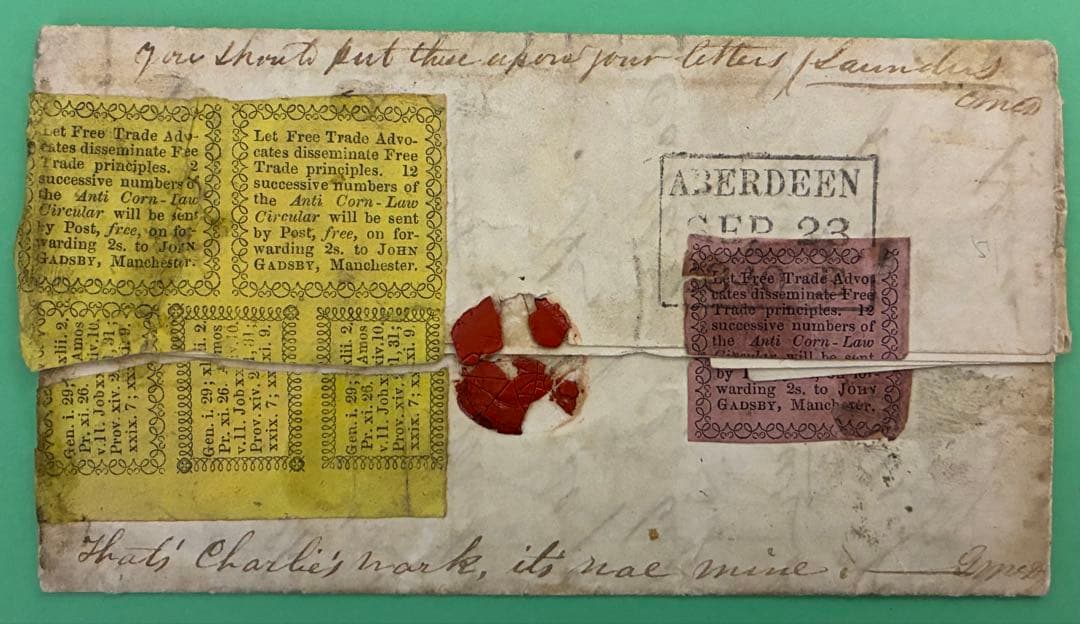 You should put these upon your letters / Saunders
Let Free Trade Adv-
cates disseminate Free
Trade principles.
successive numbers of
the Anti Corn-Law
Circular will be sent
by Post, free, on for-
warding 2s. to JOHN
GADSBY, Manchester.
Let Free Trade Advo-
cates disseminate Free
Trade principles. 12
successive numbers of
the Anti Corn-Law
Circular will be sent
by Post, free, on for-
warding 2s. to JOHN
GADSBY, Manchester.
ABERDEEN
SEP 23
Let Free Trade Advo
cates disseminate Free
Trade principles. 12
successive numbers of
the Anti Corn-Law
Circular will be sent
by
warding 2s. to JOHN
GADSBY, Manchester.
Gen. i. 29;
Pr. xi. 26.
v.11. Job
Prov. xiv.
xxix. 7;
xlii. 2,
Amos
xiv. 10,
31;
9.
Gen. i. 29; xlii. 2,
Pr. xi. 26. Amos
v.11. Job
Prov. xiv. 31;
xxix. 7; xxi. 9.
Gen. i. 29; xlii. 2,
Pr. xi. 26. Amos
v.11. Job xxiv. 10,
Prov. xiv. 31;
xxix. 7; xxi. 9.
That's Charlie's work, it's nae mine.